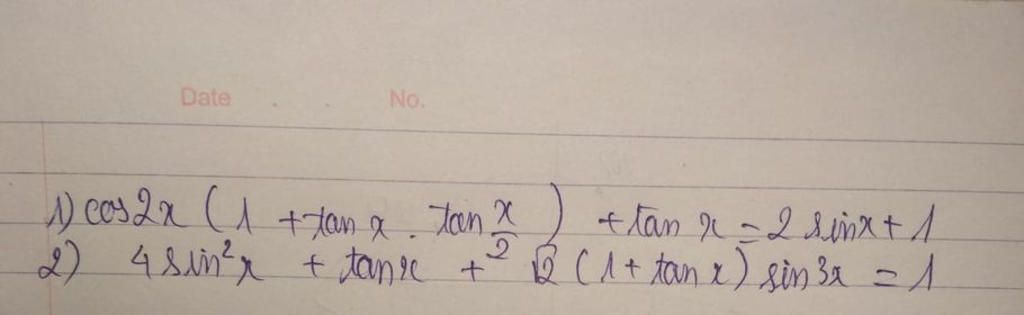 Date . . No.
1) cos2x (1 + tan x . tan x/2) + tan x = 2 sinx + 1
2) 4 sin²x + tanx + √2 (1 + tan x) sin 3x = 1